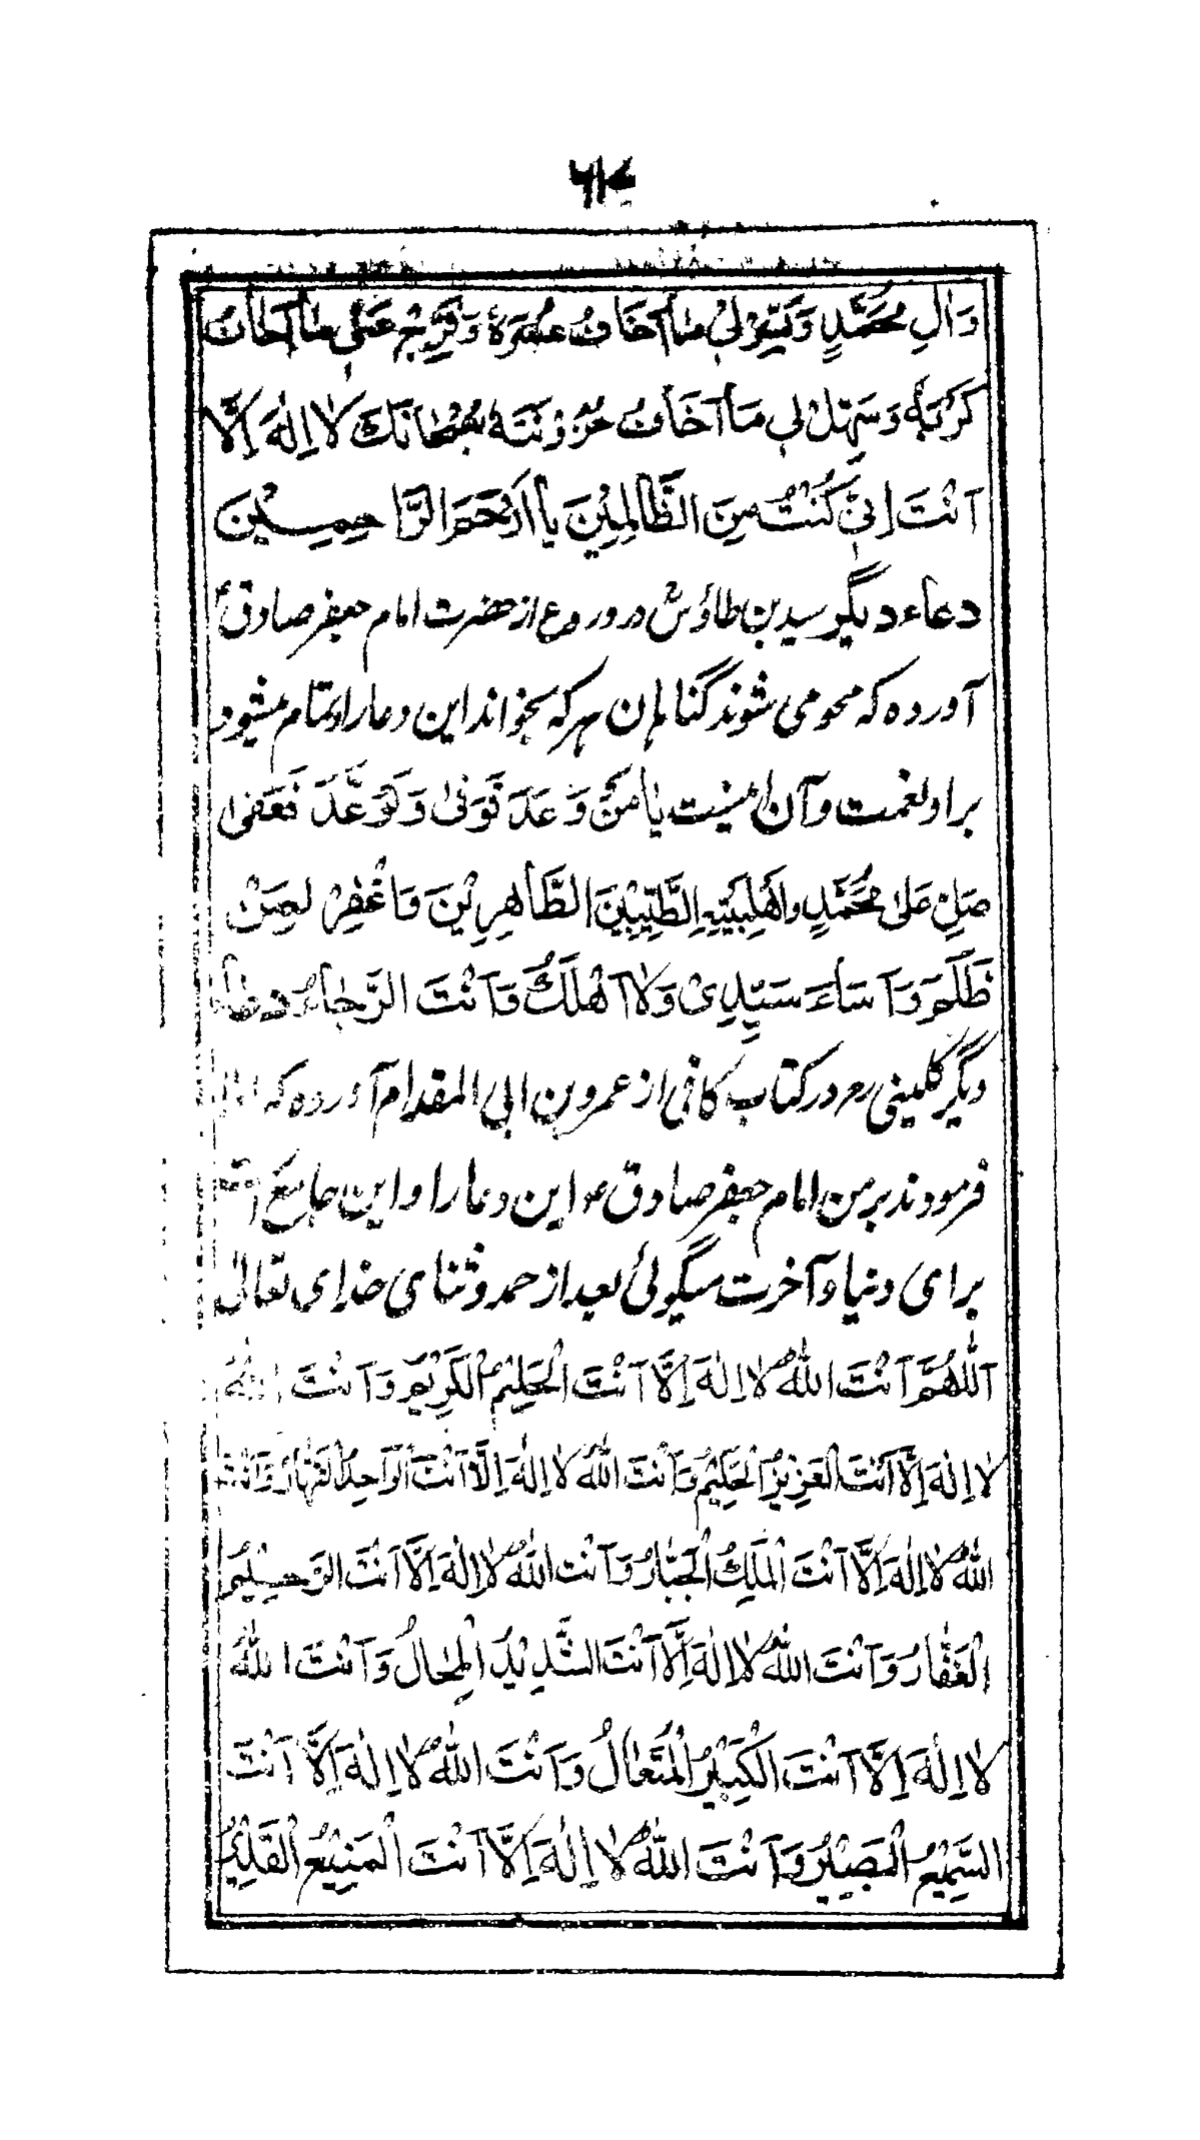 وَالِ مُحَمَّدٍ وَيَسِّرْ لِیْ مَا اَخَافُ عُسْرَةً وَفَرِّجْ عَنِّیْ مَا اَخَافُ
كَرْبَهٗ وَسَهِّلْ لِیْ مَا اَخَافُ حُزُوْنَتَهٗ سُبْحَانَكَ لَا اِلٰهَ اِلَّا
اَنْتَ اِنِّیْ كُنْتُ مِنَ الظَّالِمِیْنَ یَا اَرْحَمَ الرَّاحِمِیْنَ
دعاء دیگر سید بن طاؤس در دروع از حضرت امام جعفر صادق ؑ
آورده که محو می شوند گناہان ہر که بخواند این دعا را و تمام میشود
بر او نعمت و آن اینست یَا مَنْ وَعَدَ فَوَفٰی وَتَوَعَّدَ فَعَفٰی
صَلِّ عَلٰی مُحَمَّدٍ وَاَهْلِبَیْتِهِ الطَّیِّبِیْنَ الطَّاهِرِیْنَ وَاغْفِرْ لِمَنْ
ظَلَمَ وَاَسَاءَ سَیِّدِیْ وَلَا اَهْلَكُ وَاَنْتَ الرَّجَاءُ دعاء
دیگر کلینی رح در کتاب کافی از عمرو بن ابی المقدام آورده که
فرمودند بر من امام جعفر صادق ع این دعا را و این جامع است
برای دنیا و آخرت میگوئی بعد از حمد و ثنای خدای تعالی
اَللّٰهُمَّ اَنْتَ اللّٰهُ لَا اِلٰهَ اِلَّا اَنْتَ الْحَلِیْمُ الْكَرِیْمُ وَاَنْتَ اللّٰهُ
لَا اِلٰهَ اِلَّا اَنْتَ الْعَزِیْزُ الْحَكِیْمُ وَاَنْتَ اللّٰهُ لَا اِلٰهَ اِلَّا اَنْتَ الْوَاحِدُ الْقَهَّارُ وَاَنْتَ
اللّٰهُ لَا اِلٰهَ اِلَّا اَنْتَ الْمَلِكُ الْجَبَّارُ وَاَنْتَ اللّٰهُ لَا اِلٰهَ اِلَّا اَنْتَ الرَّحِیْمُ
الْغَفَّارُ وَاَنْتَ اللّٰهُ لَا اِلٰهَ اِلَّا اَنْتَ الشَّدِیْدُ الْمِحَالُ وَاَنْتَ اللّٰهُ
لَا اِلٰهَ اِلَّا اَنْتَ الْكَبِیْرُ الْمُتَعَالُ وَاَنْتَ اللّٰهُ لَا اِلٰهَ اِلَّا اَنْتَ
السَّمِیْعُ الْبَصِیْرُ وَاَنْتَ اللّٰهُ لَا اِلٰهَ اِلَّا اَنْتَ الْمَنِیْعُ الْقَدِیْرُ